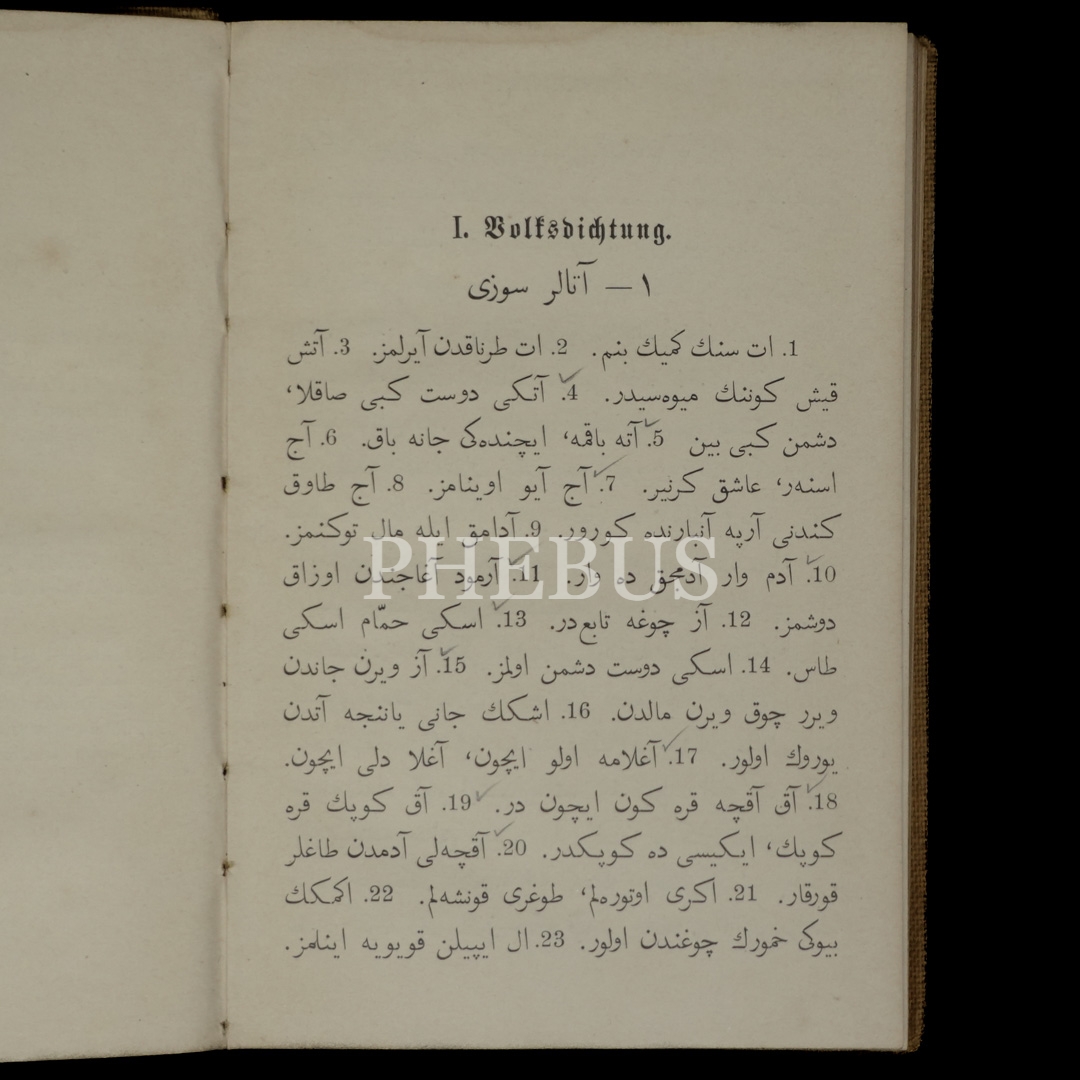 I. Volksdichtung.
١ — آتالر سوزی
1. ات سنك كميك بنم. 2. ات طرناقدن آيرلمز. 3. آتش
قيش كوننك ميوه‌سيدر. 4. آتكی دوست كبی صاقلا،
دشمن كبی بين 5. آته باقمه، ايچنده‌كی جانه باق. 6. آج
اسنه‌ر، عاشق كرنير. 7. آج آيو اوينامز. 8. آج طاوق
كندنی آرپه آنبارنده كورور. 9. آدامق ايله مال توكنمز.
10. آدم وار آدمجق ده وار. 11. آرمود آغاجندن اوزاق
دوشمز. 12. آز چوغه تابع‌در. 13. اسكی حمّام اسكی
طاس. 14. اسكی دوست دشمن اولمز. 15. آز ويرن جاندن
ويرر چوق ويرن مالدن. 16. اشكك جانی ياننجه آتدن
يوروك اولور. 17. آغلامه اولو ايچون، آغلا دلی ايچون.
18. آق آقچه قره كون ايچون در. 19. آق كوپك قره
كوپك، ايكيسی ده كوپكدر. 20. آقچه‌لی آدمدن طاغلر
قورقار. 21. اكری اوتوره‌لم، طوغری قونشه‌لم. 22. اكمكك
بيوكی خمورك چوغندن اولور. 23. ال ايپيلن قويويه اينلمز.
PHEBUS